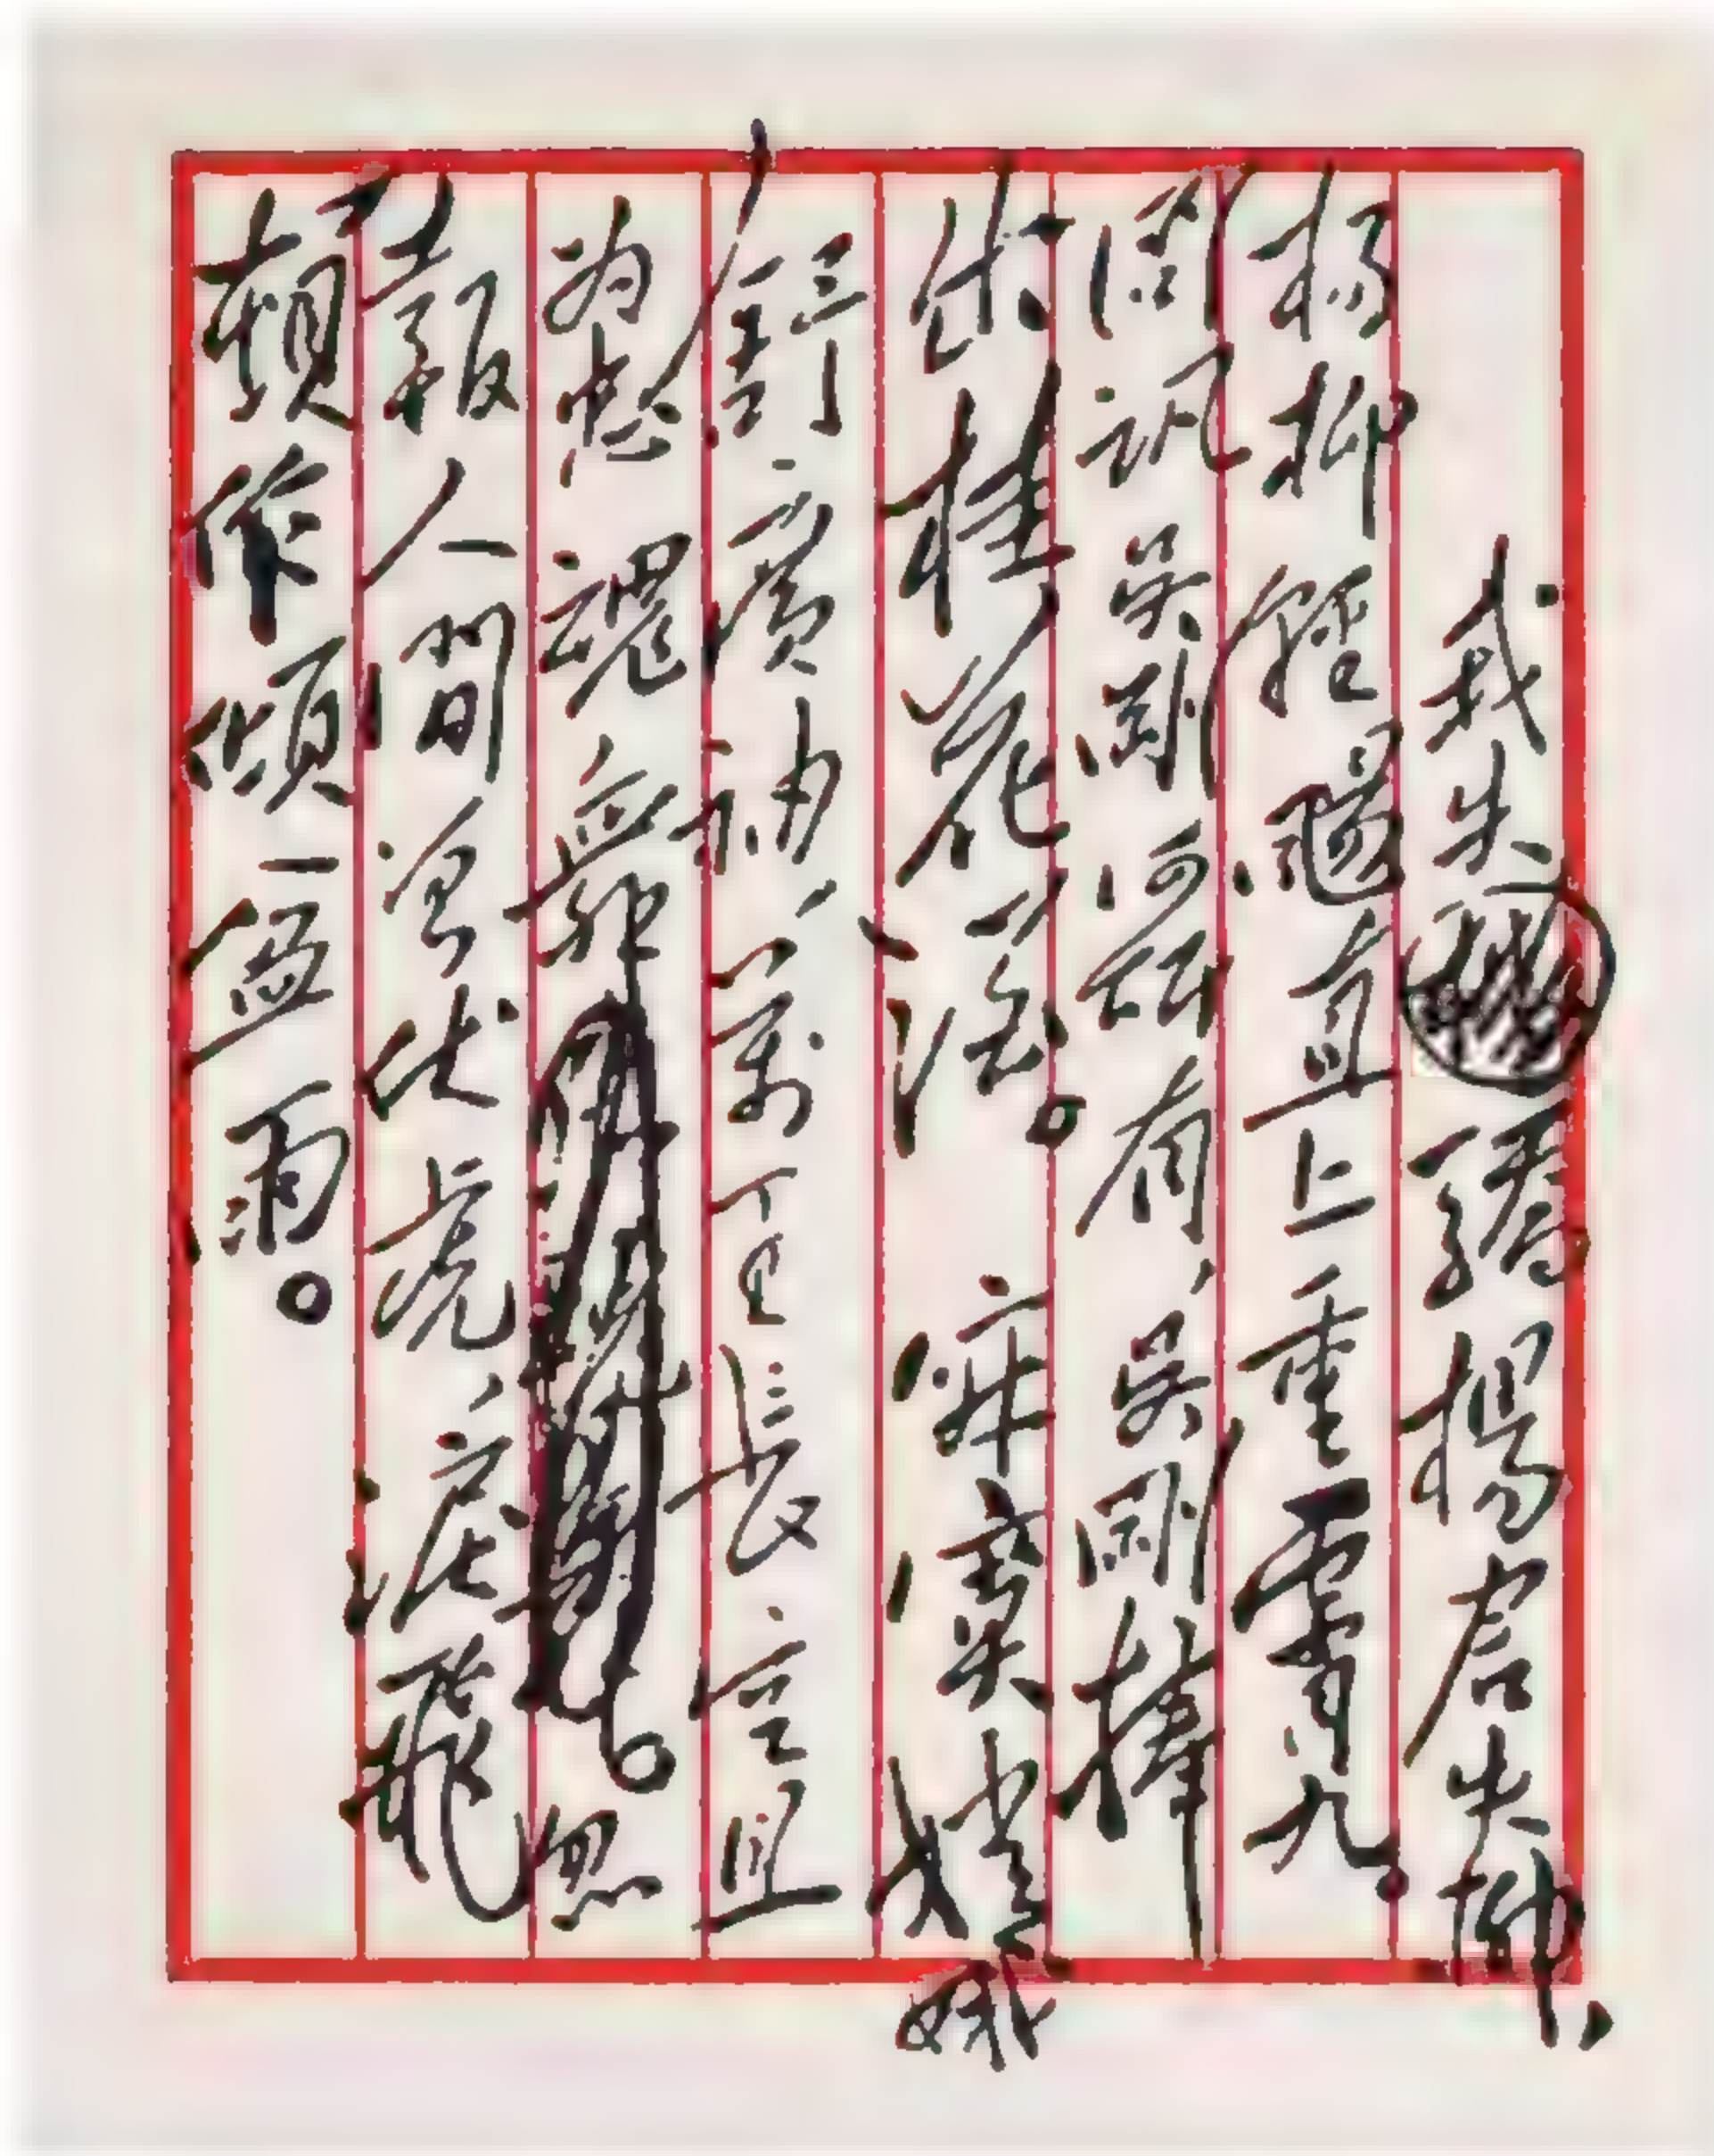 我失驕楊君失柳、
杨柳輕颺直上重霄九。
問訊吳剛何所有、吳剛捧
出桂花酒。 寂寞嫦娥
舒廣袖、萬里長空且
为忠魂舞。忽
報人間曾伏虎、淚飛
頓作傾盆雨。